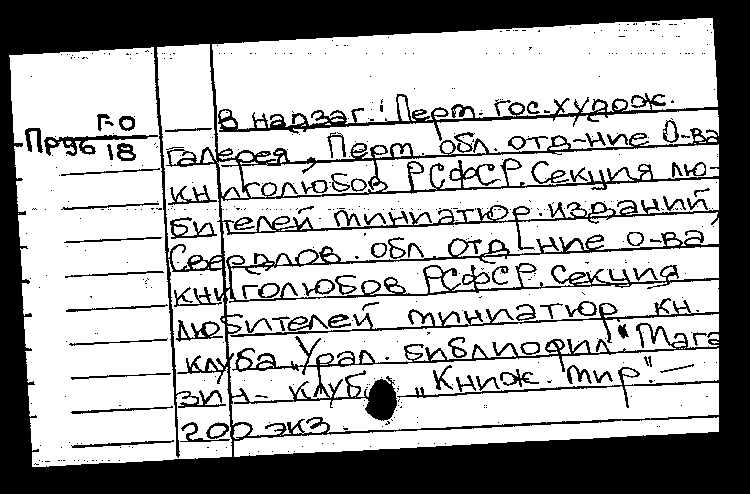 В надзаг.: Перм. гос. худож.
Г-0
Пр96 18
галерея, Перм. обл. отд-ние О-ва
книголюбов РСФСР. Секция лю-
бителей миниатюр. изданий,
Свердлов. обл. отд-ние о-ва
книголюбов РСФСР. Секция
любителей миниатюр. кн.
клуба „Урал. библиофил“. Мага-
зин-клуб „Книж. мир“. —
200 экз.